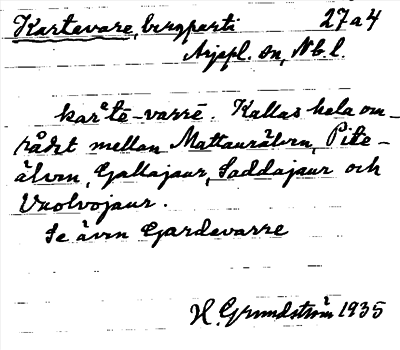 Kartevare, bergparti 27a4
Arjepl. sn, Nb. l.
kar̄tē-varrē. Kallas hela om-
rådet mellan Mattaurälven, Pite-
älven, Gallajaur, Saddajaur och
Vuolvojaur.
Se även Gardevarre
H. Grundström 1935